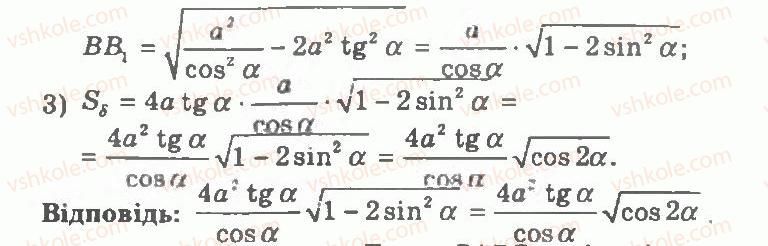 BB₁ = √(a²/cos² α − 2a² tg² α) = a/cos α · √(1 − 2 sin² α);
3) Sδ = 4a tg α · a/cos α · √(1 − 2 sin² α) =
= 4a² tg α/cos α √(1 − 2 sin² α) = 4a² tg α/cos α √(cos 2α).
Відповідь: 4a² tg α/cos α √(1 − 2 sin² α) = 4a² tg α/cos α √(cos 2α).